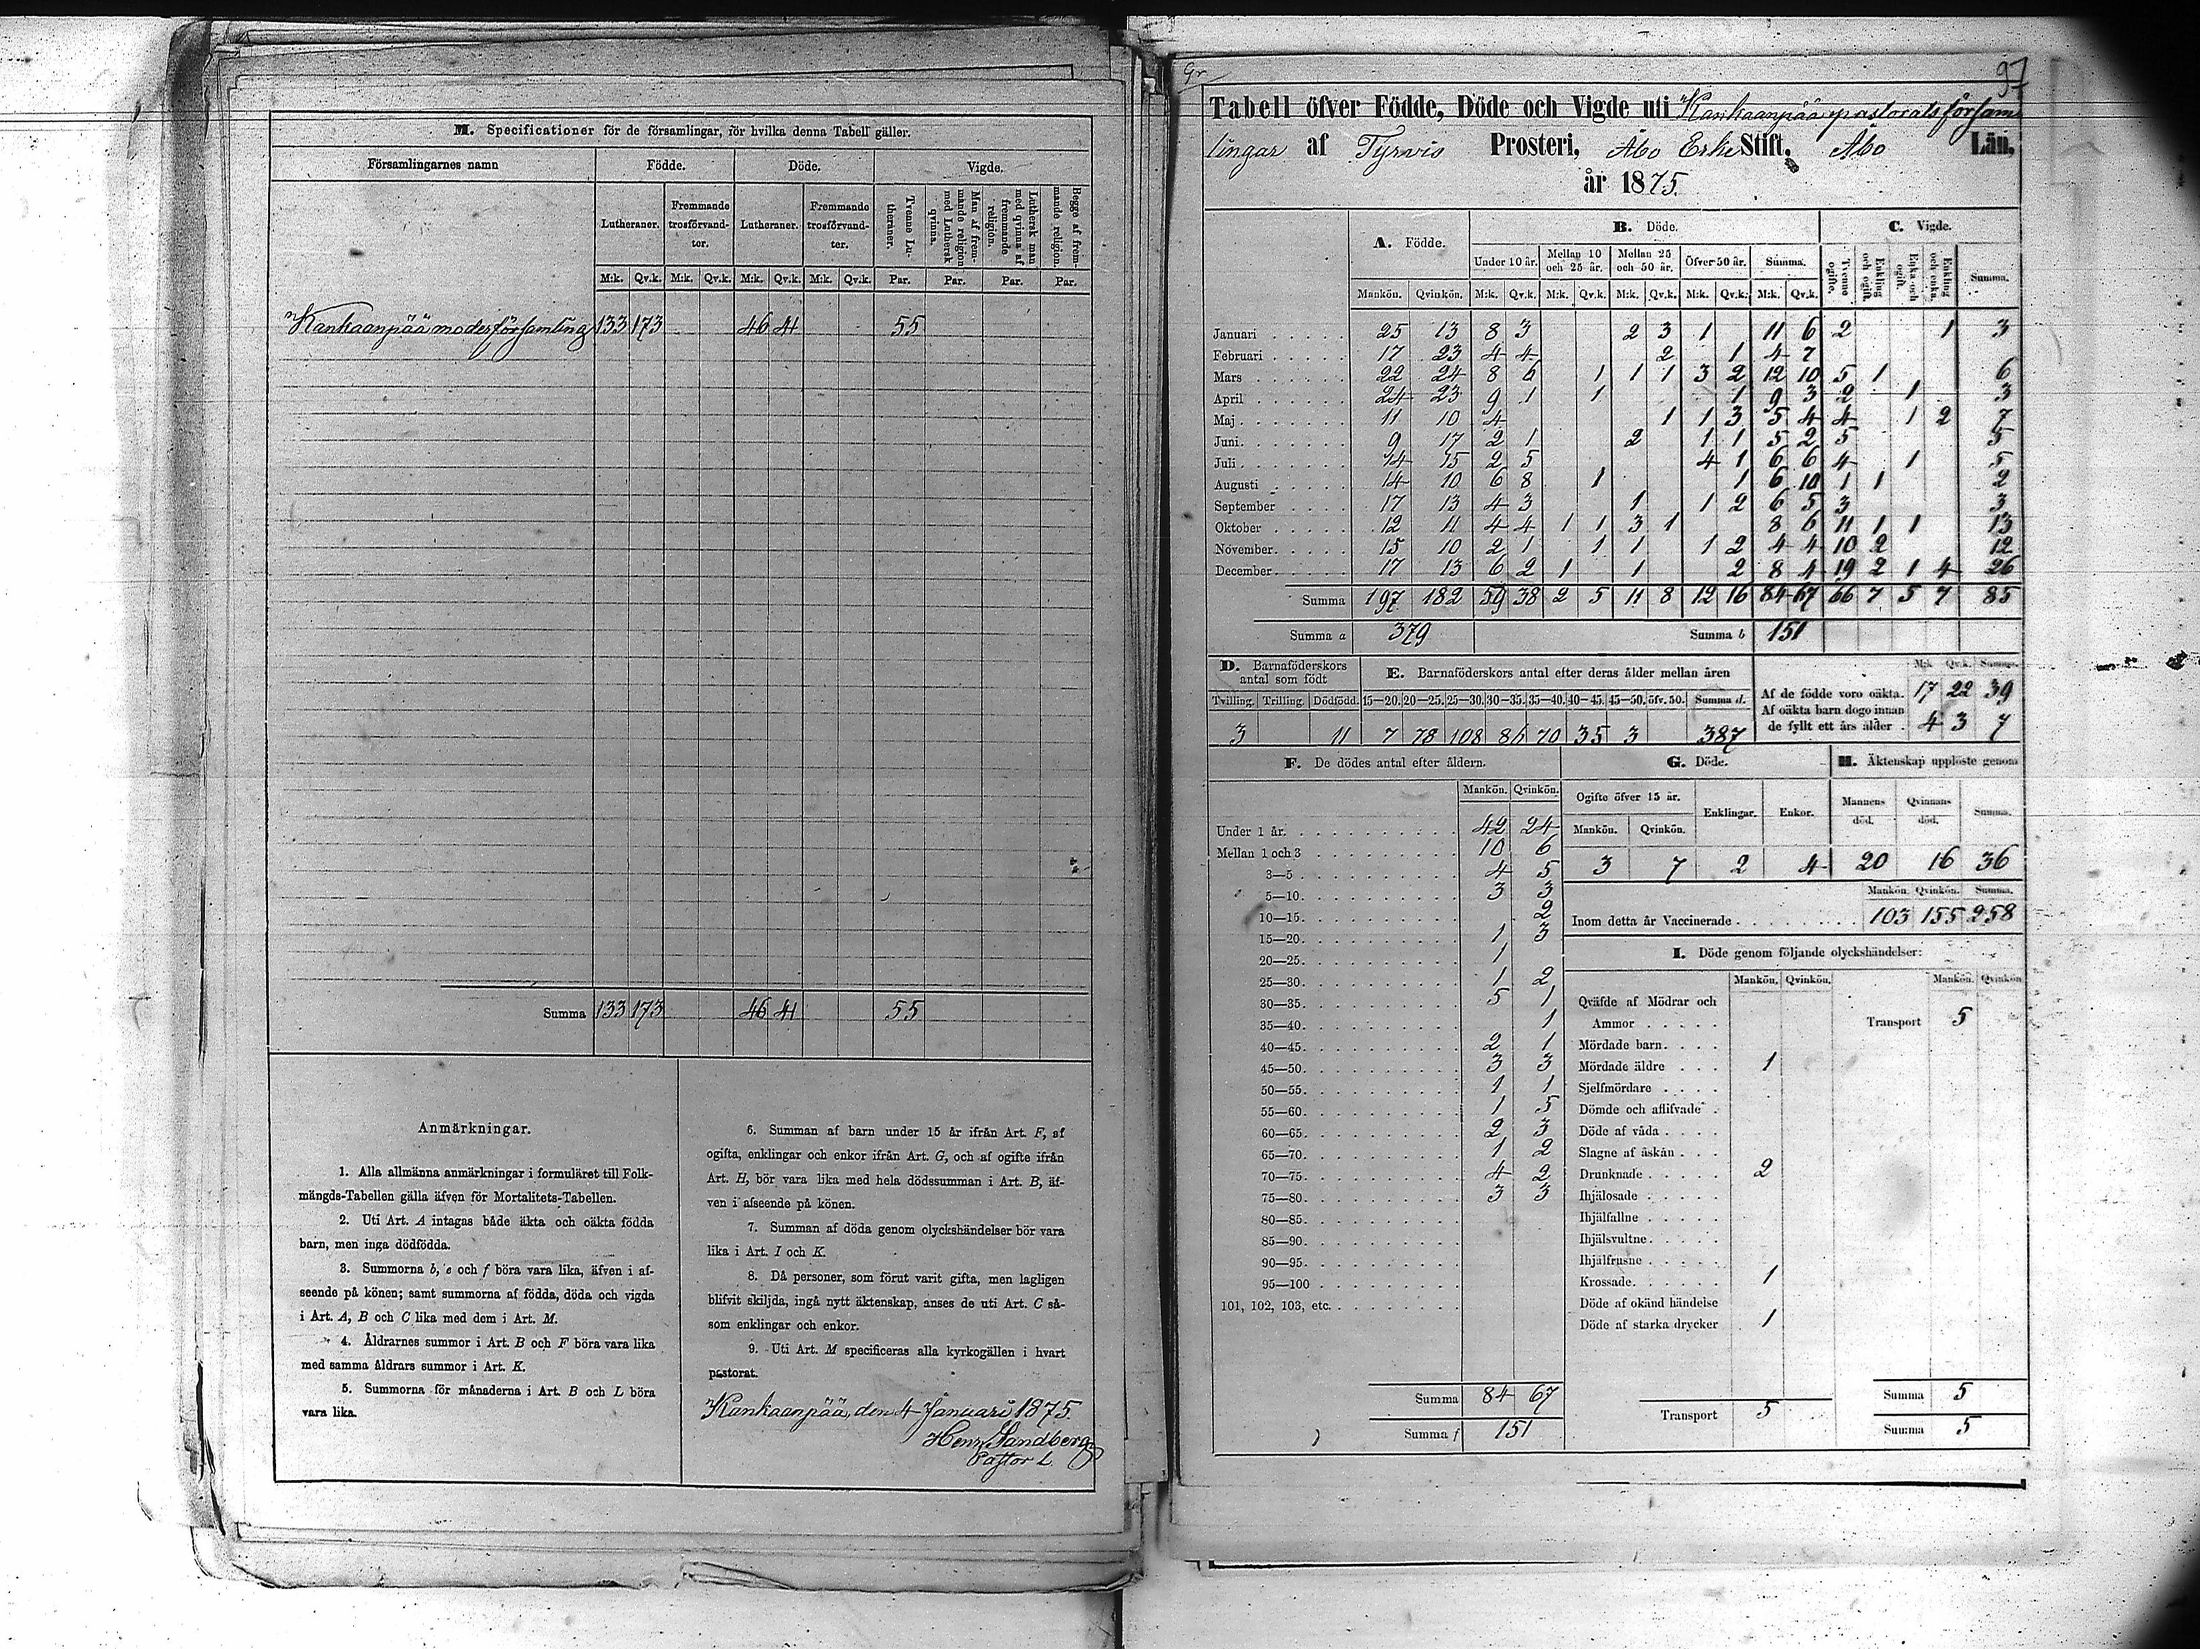 M. Specificationer för de församlingar, för hvilka denna Tabell gäller.
Församlingarnes namn Födde. Döde. Vigde.
Lutheraner. Fremmande trosförvandter. Lutheraner. Fremmande trosförvandter. Tvenne Lutheraner. Man af fremmande religion med Luthersk qvinna. Luthersk man med qvinna af fremmande religion. Begge af fremmande religion.
M:k. Qv.k. M:k. Qv.k. M:k. Qv.k. M:k. Qv.k. Par. Par. Par. Par.
Kankaanpää moderförsamling 133 173 46 41 55
Summa 133 173 46 41 55
Anmärkningar.
1. Alla allmänna anmärkningar i formuläret till Folk-
mängds-Tabellen gälla äfven för Mortalitets-Tabellen.
2. Uti Art. A intagas både äkta och oäkta födda
barn, men inga dödfödda.
3. Summorna b, e och f böra vara lika, äfven i af-
seende på könen; samt summorna af födda, döda och vigda
i Art. A, B och C lika med dem i Art. M.
4. Åldrarnes summor i Art. B och F böra vara lika
med samma åldrars summor i Art. K.
5. Summorna för månaderna i Art. B och L böra
vara lika.
6. Summan af barn under 15 år ifrån Art. F, af
ogifta, enklingar och enkor ifrån Art. G, och af ogifte ifrån
Art. H, bör vara lika med hela dödssumman i Art. B, äf-
ven i afseende på könen.
7. Summan af döda genom olyckshändelser bör vara
lika i Art. I och K.
8. Då personer, som förut varit gifta, men lagligen
blifvit skiljda, ingå nytt äktenskap, anses de uti Art. C så-
som enklingar och enkor.
9. Uti Art. M specificeras alla kyrkogällen i hvart
pastorat.
Kankaanpää, den 4 Januari 1875.
Henr Sandberg
Pastor L.
97
Tabell öfver Födde, Döde och Vigde uti Kankaanpää pastorats försam
lingar af Tyrvis Prosteri, Åbo Erke Stift, Åbo Län,
år 1875.
A. Födde. B. Döde. C. Vigde.
Under 10 år. Mellan 10 och 25 år. Mellan 25 och 50 år. Öfver 50 år. Summa. Tvenne ogifte. Enkling och ogift. Enka och ogift. Enkling och enka. Summa.
Mankön. Qvinkön. M:k. Qv.k. M:k. Qv.k. M:k. Qv.k. M:k. Qv.k. M:k. Qv.k.
Januari 25 13 8 3 2 3 1 11 6 2 1 3
Februari 17 23 4 4 2 1 4 7
Mars 22 24 8 6 1 1 1 3 2 12 10 5 1 6
April 24 23 9 1 1 1 9 3 2 1 3
Maj 11 10 4 1 1 3 5 4 4 1 2 7
Juni. 9 17 2 1 2 1 1 5 2 5 5
Juli 14 15 2 5 4 1 6 6 4 1 5
Augusti 14 10 6 8 1 1 6 10 1 1 2
September 17 13 4 3 1 1 2 6 5 3 3
Oktober 12 11 4 4 1 1 3 1 8 6 11 1 1 13
November. 15 10 2 1 1 1 1 2 4 4 10 2 12
December. 17 13 6 2 1 1 2 8 4 19 2 1 4 26
Summa 197 182 59 38 2 5 11 8 12 16 84 67 66 7 5 7 85
Summa a 379 Summa b 151
D. Barnaföderskors antal som född
Tvilling. Trilling. Dödfödd.
3 11
E. Barnaföderskors antal efter deras ålder mellan åren
15—20. 20—25. 25—30. 30—35. 35—40. 40—45. 45—50. öfv. 50. Summa d.
7 78 108 86 70 35 3 387
M:k. Qv.k. Summa.
Af de födde voro oäkta. 17 22 39
Af oäkta barn dogo innan
de fyllt ett års ålder. 4 3 7
F. De dödes antal efter åldern.
Mankön. Qvinkön.
Under 1 år. 42 24
Mellan 1 och 3 10 6
3—5 4 5
5—10. 3 3
10—15. 2
15—20. 1 3
20—25. 1
25—30. 1 2
30—35. 5 1
35—40. 1
40—45. 2 1
45—50. 3 3
50—55. 1 1
55—60. 1 5
60—65. 2 3
65—70. 1 2
70—75. 4 2
75—80. 3 3
80—85.
85—90.
90—95.
95—100
101, 102, 103, etc.
Summa 84 67
Summa f 151
G. Döde.
Ogifte öfver 15 år. Enklingar. Enkor.
Mankön. Qvinkön.
3 7 2 4
H. Äktenskap upplöste genom
Mannens död. Qvinnans död. Summa.
20 16 36
Mankön. Qvinkön. Summa.
Inom detta år Vaccinerade 103 155 258
I. Döde genom följande olyckshändelser:
Mankön. Qvinkön. Mankön. Qvinkön
Qväfde af Mödrar och
Ammor
Mördade barn.
Mördade äldre 1
Sjelfmördare
Dömde och aflifvade
Döde af våda
Slagne af åskan
Drunknade 2
Ihjälosade
Ihjälfallne
Ihjälsvultne.
Ihjälfrusne
Krossade. 1
Döde af okänd händelse
Döde af starka drycker 1
Transport 5
Transport 5
Summa 5
Summa 5